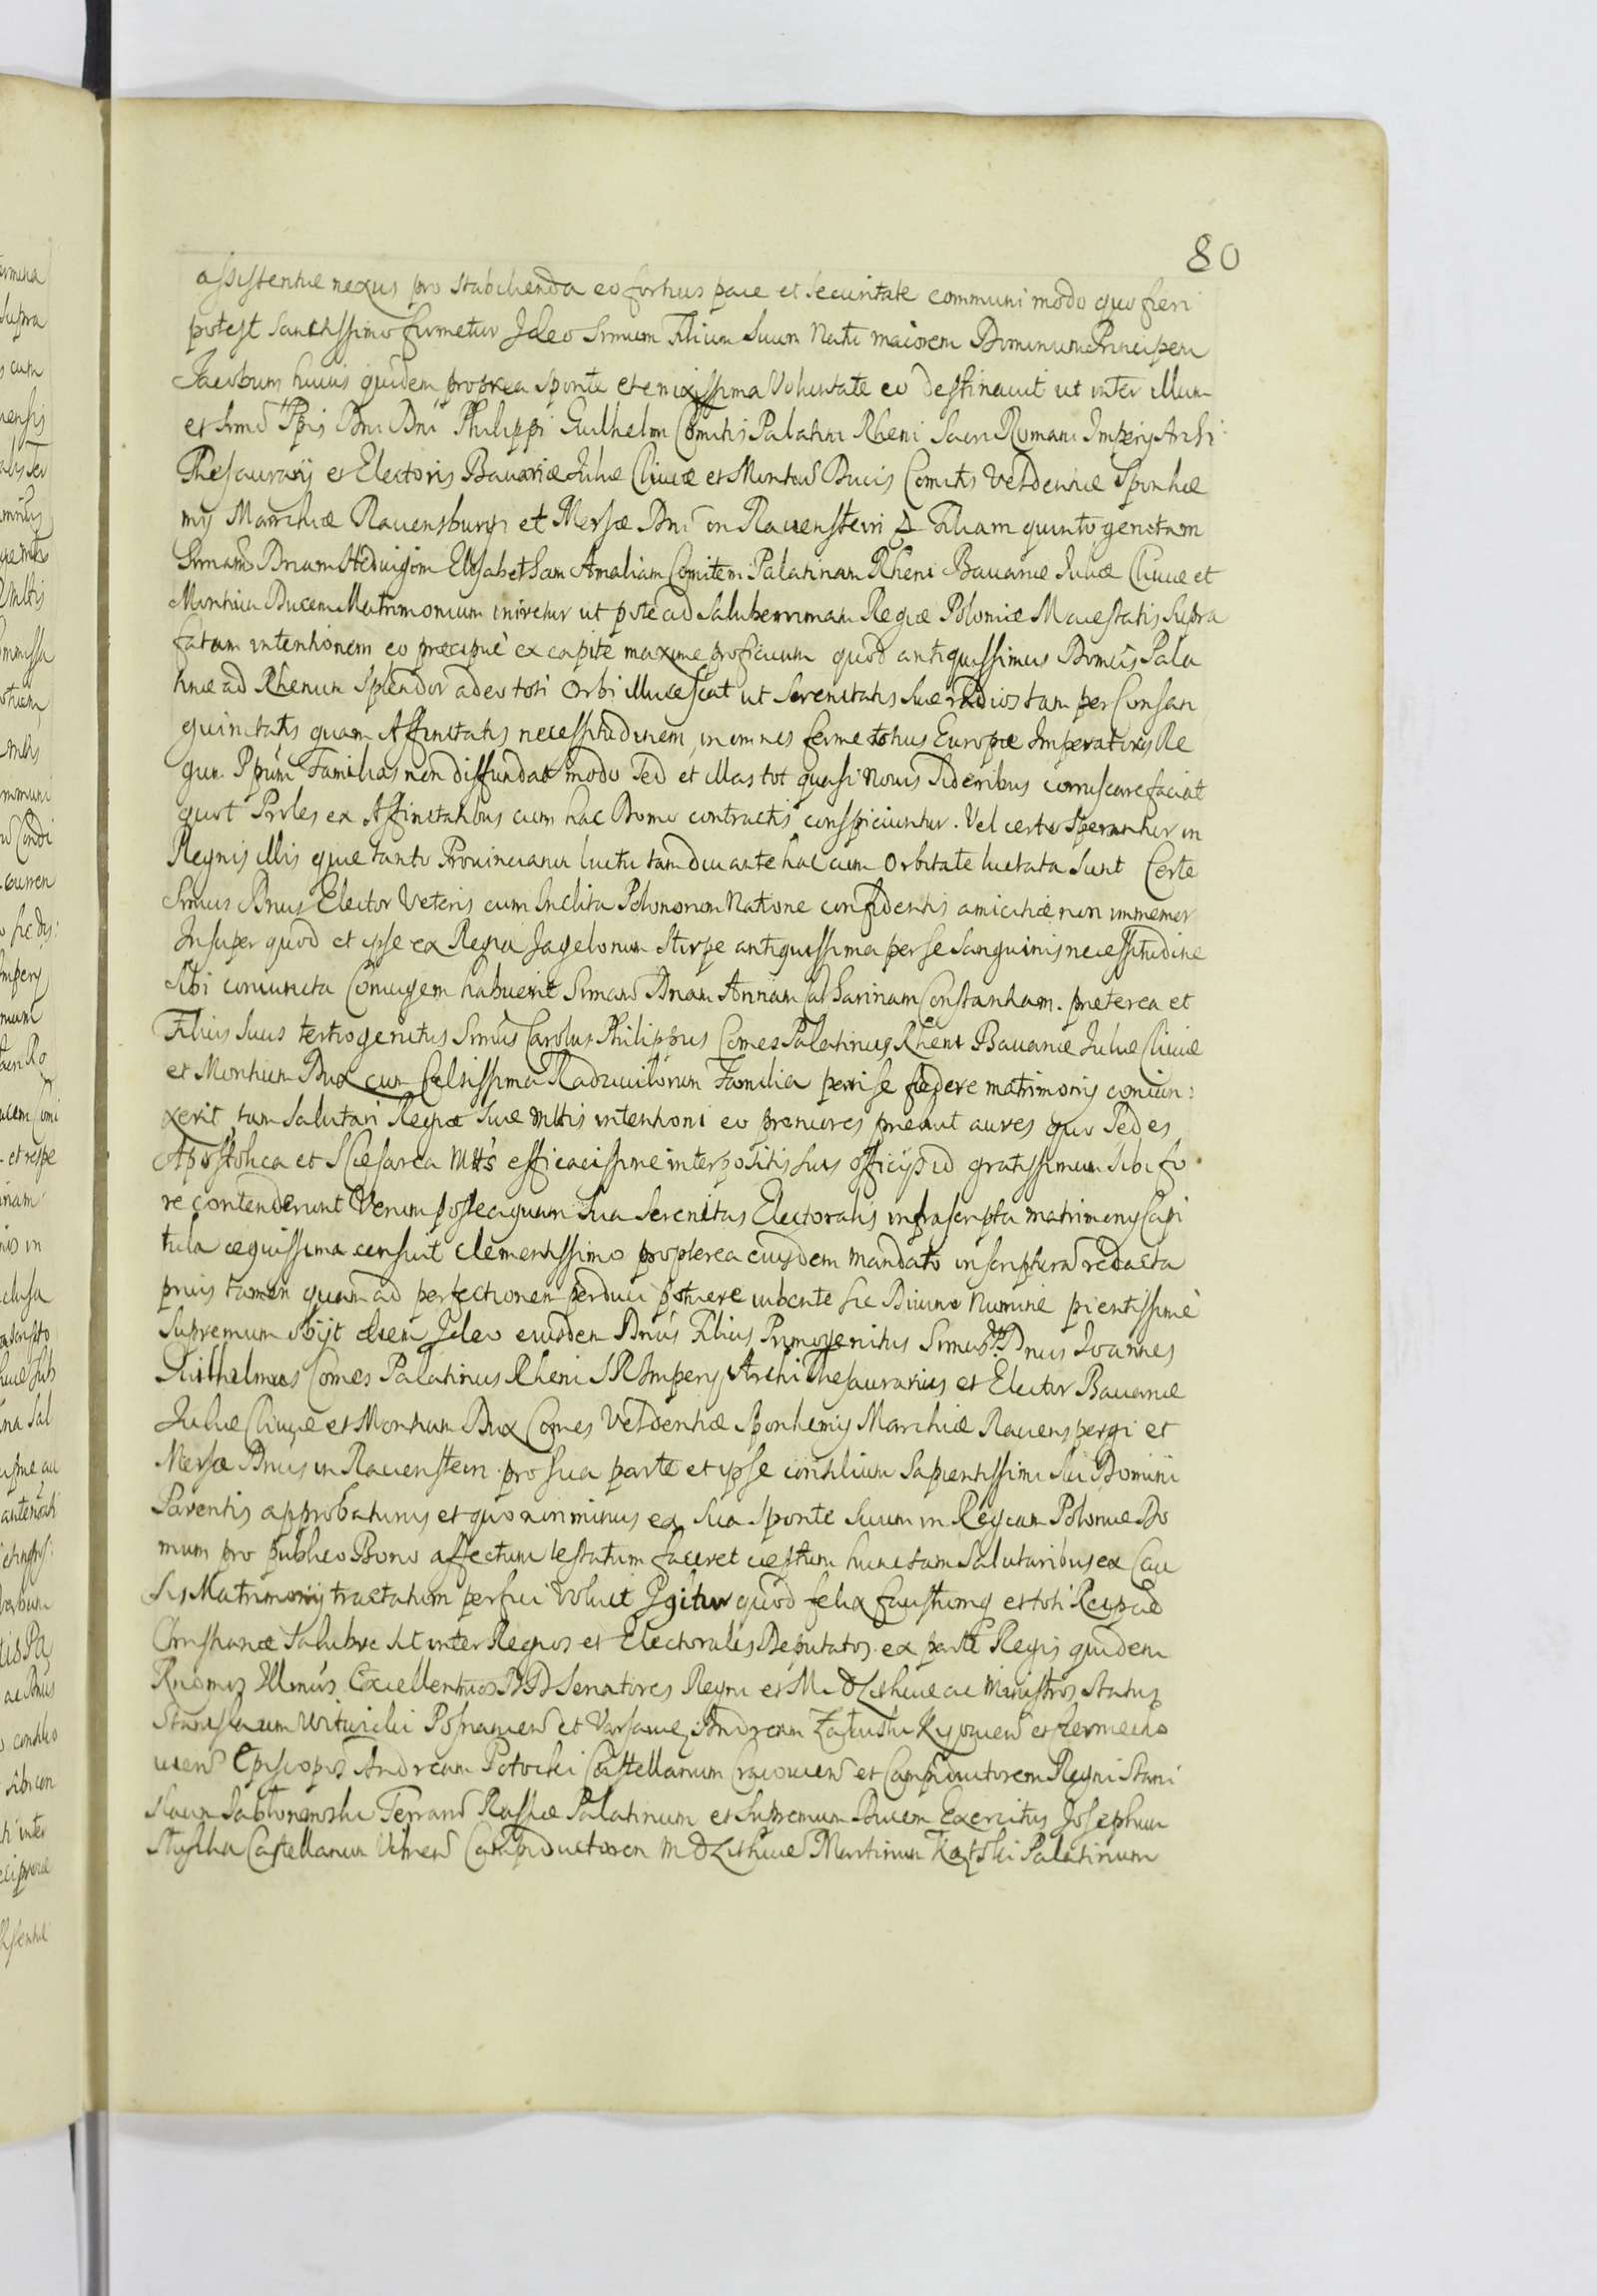 80
assistentiæ nexus pro stabilienda eo fortius pace et securitate communi modo quo fieri
potest sanctissimo firmetur Ideo Srmum Filium Suum Natu maiorem Dominum Principem
Jacobum huius quidem propria sponte et enixissima Voluntate eo destinavit ut inter illum
et Srmi Ppis Dni Dni Philippi Guilhelmi Comitis Palatini Rheni Sacri Romani Imperij Archi
Thesaurarij et Electoris Bavariæ Juliæ Cliviæ et Montium Ducis Comitis Veldentiæ Sponhe
mij Marchiæ Ravensburgi et Mersæ Dni in Ravenstein Filiam quinto genitam
Srmam Dnam Hedvigim Elisabetham Amaliam Comitem Palatinam Rheni Bavariæ Juliæ Cliviæ et
Montium Ducem Matrimonium iniretur ut pote ad saluberrimam Regiæ Poloniæ Maiestatis supra
fatam intentionem eo præcipuè ex capite maxime proficuum quod antiquissimus Domus Pala
tinæ ad Rhenum splendor adeo toti Orbi illucescat ut Serenitatis suæ radios tam per Consan
guinitatis quam Affinitatis necessitudinem, in omnes ferme totius Europæ Imperatorys Re
gum Ppum Familias non diffundat modo sed et illas tot quasi novis sideribus corruscare faciat
quot Proles ex Affinitatibus cum hac Domo contractis conspiciuntur. Vel certe sperantur in
Regnis illis quæ tanto Provinciarum luctu tamdiu ante hac cum Orbitate luctata sunt Certe
Srmus Dnus Elector Veteris cum Inclita Polonorum Natione confidentis amicitiæ non immemor
Insuper quod et ipse ex Regia Jagelonum stirpe antiquissima per se sanguinis necessitudine
sibi coniuncta Coniugem habuerit Srmam Dnam Annam Catharinam Constantiam. præterea et
Filius suus tertiogenitus Srmus Carolus Philippus Comes Palatinus Rheni Bavariæ Juliæ Cliviæ
et Montium Dux cum Celsissima Radzivilorum Familia per se fædere matrimonij coniun:
xerit, tam salutari Regiæ suæ Mttis intentioni eo proniores præbuit aures quo Sedes
Apostolica et SCæsarea Mtts efficacissime interpositis suis officijs id gratissimum sibi fo
re contenderunt Verum posteaquam Sua Serenitas Electoralis infrascripta matrimonij Capi
tula æquissima censuit clementissimo propterea eiusdem mandato in scripturam redacta
prius tamen quam ad perfectionem perduci potuere iubente sic Divino Numine pientissimè
supremum obijt diem Ideo eiusdem Dnus Filius Primogenitus Srmus Dnus Joannes
Guilhelmus Comes Palatinus Rheni SRImperij ArchiThesaurarius et Elector Bavariæ
Juliæ Cliviæ et Montium Dux Comes Veldentiæ Sponhemij Marchiæ Ravenspergi et
Mersæ Dnus in Ravenstein pro sua parte et ipse consilium sapientissimi sui Domini
Parentis approbaturus et quo non minus ex sua sponte suum in Regiam Poloniæ Do
mum pro publico Bono affectum testatum faceret cæptum hunc tam salutaribus ex Cau
sis Matrimonij tractatum perfici voluit Igitur quod felix faustumq et toti Reipub
Christianæ salubre sit inter Regios et Electorales Deputatos ex parte Regis quidem
Rndmos Illmos Excellentmos DD Senatores Regni et M D Lithuæ ac Ministros Status
Stanislaum Witwicki Posnanien et Varsaviæ, Andream Załuski Kijovien et Czerniecho
vien Episcopos Andream Potocki Castellanum Cracovien et Campiductorem Regni Stani
slaum Jabłonowski Terrarum Russiæ Palatinum et Supremum Ducem Exercitus Josephum
Słuszka Castellanum Vilnen Campiductorem M D Lithuæ Martinum Kątski Palatinum